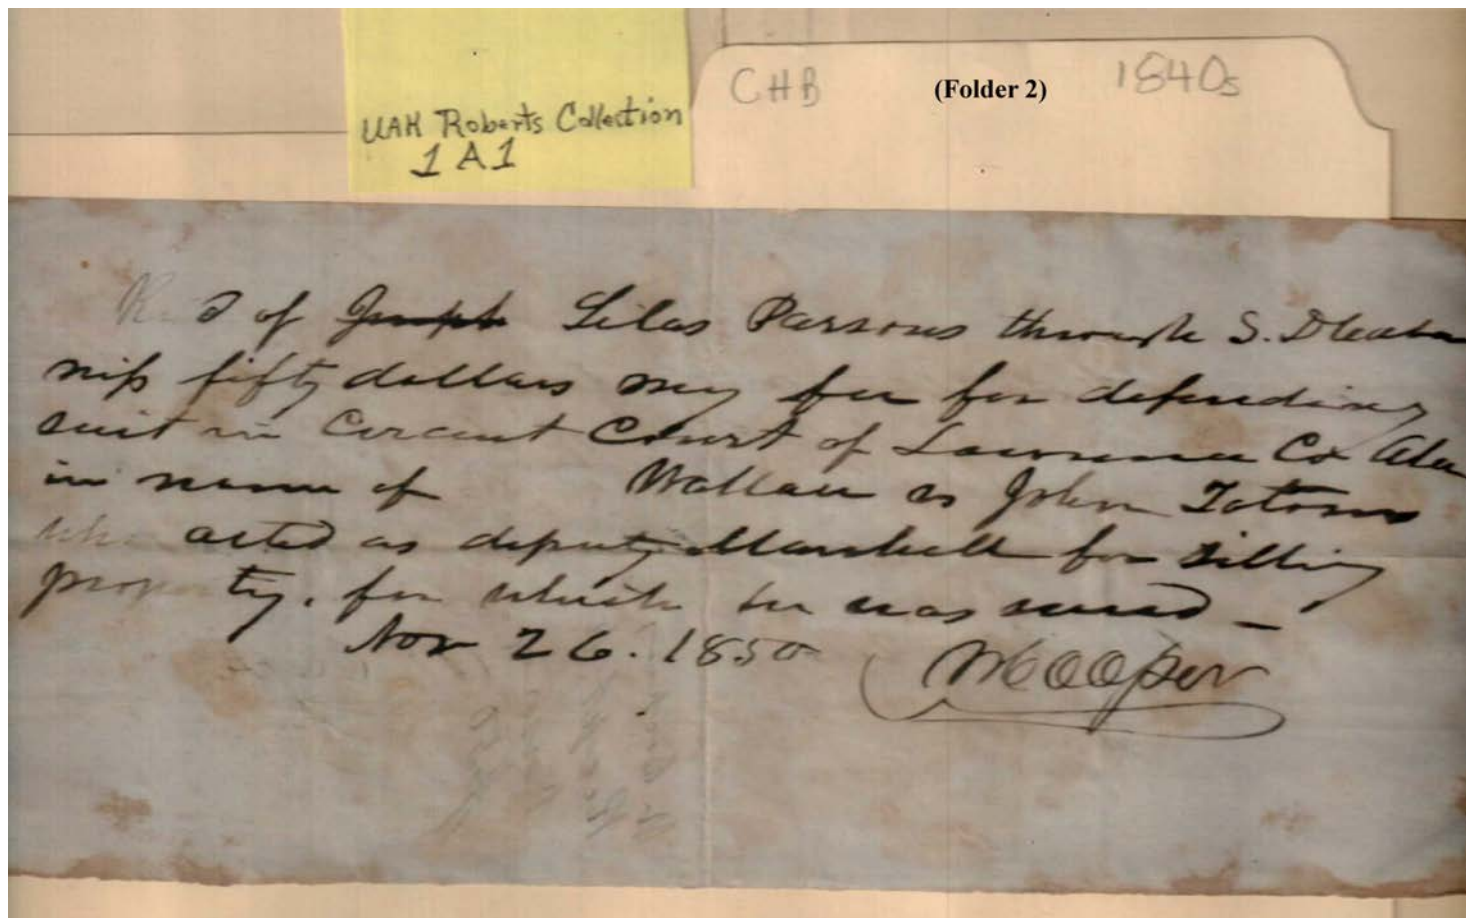 UAH Roberts Collection
1 A 1
CHB (Folder 2) 1840s
of Joseph Silas Parsons through S. D.
fifty dollars my fee for defending
suit in Circuit Court of Lawrence Co Ala
in name of Wallace vs John Tatom
who acted as deputy Marshall for selling
property, for which he was sued –
Nov 26. 1850 Cooper